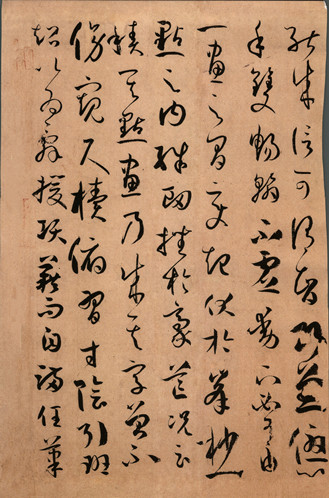 能成信可謂智巧兼優心
手雙暢翰不虛動下必有由
一畫之間變起伏於峯杪一
點之內殊衄挫於豪芒況云
積其點畫乃成其字曾不
傍窺尺櫝俯習寸陰引班
超以為辭援項藉而自滿任筆